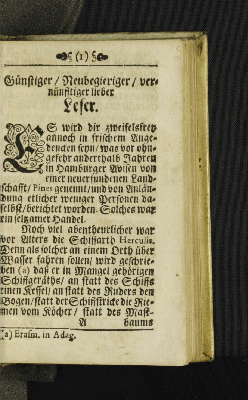 (1)
Günstiger / Neubegieriger / ver-
nünfftiger lieber
Leser.
ES wird dir zweifelsfrey
annoch in frischem Ange-
dencken seyn / was vor ohn-
gefehr anderthalb Jahren
in Hamburger Avisen von
einer neuerfundenen Land-
schafft / Pines genennt / und von Anlän-
dung etlicher weniger Personen da-
selbst / berichtet worden. Solches war
ein seltzamer Handel.
Noch viel abentheurlicher war
vor Alters die Schiffarth Herculis.
Denn als solcher an einem Orth über
Wasser fahren sollen / wird geschrie-
ben (a) daß er in Mangel gehörigen
Schiffgeräths / an statt des Schiffs
einen Kessel / an statt des Ruders den
Bogen / statt der Schiffstricke die Rie-
men vom Köcher / statt des Mast-
A baums
(a) Erasm. in Adag.